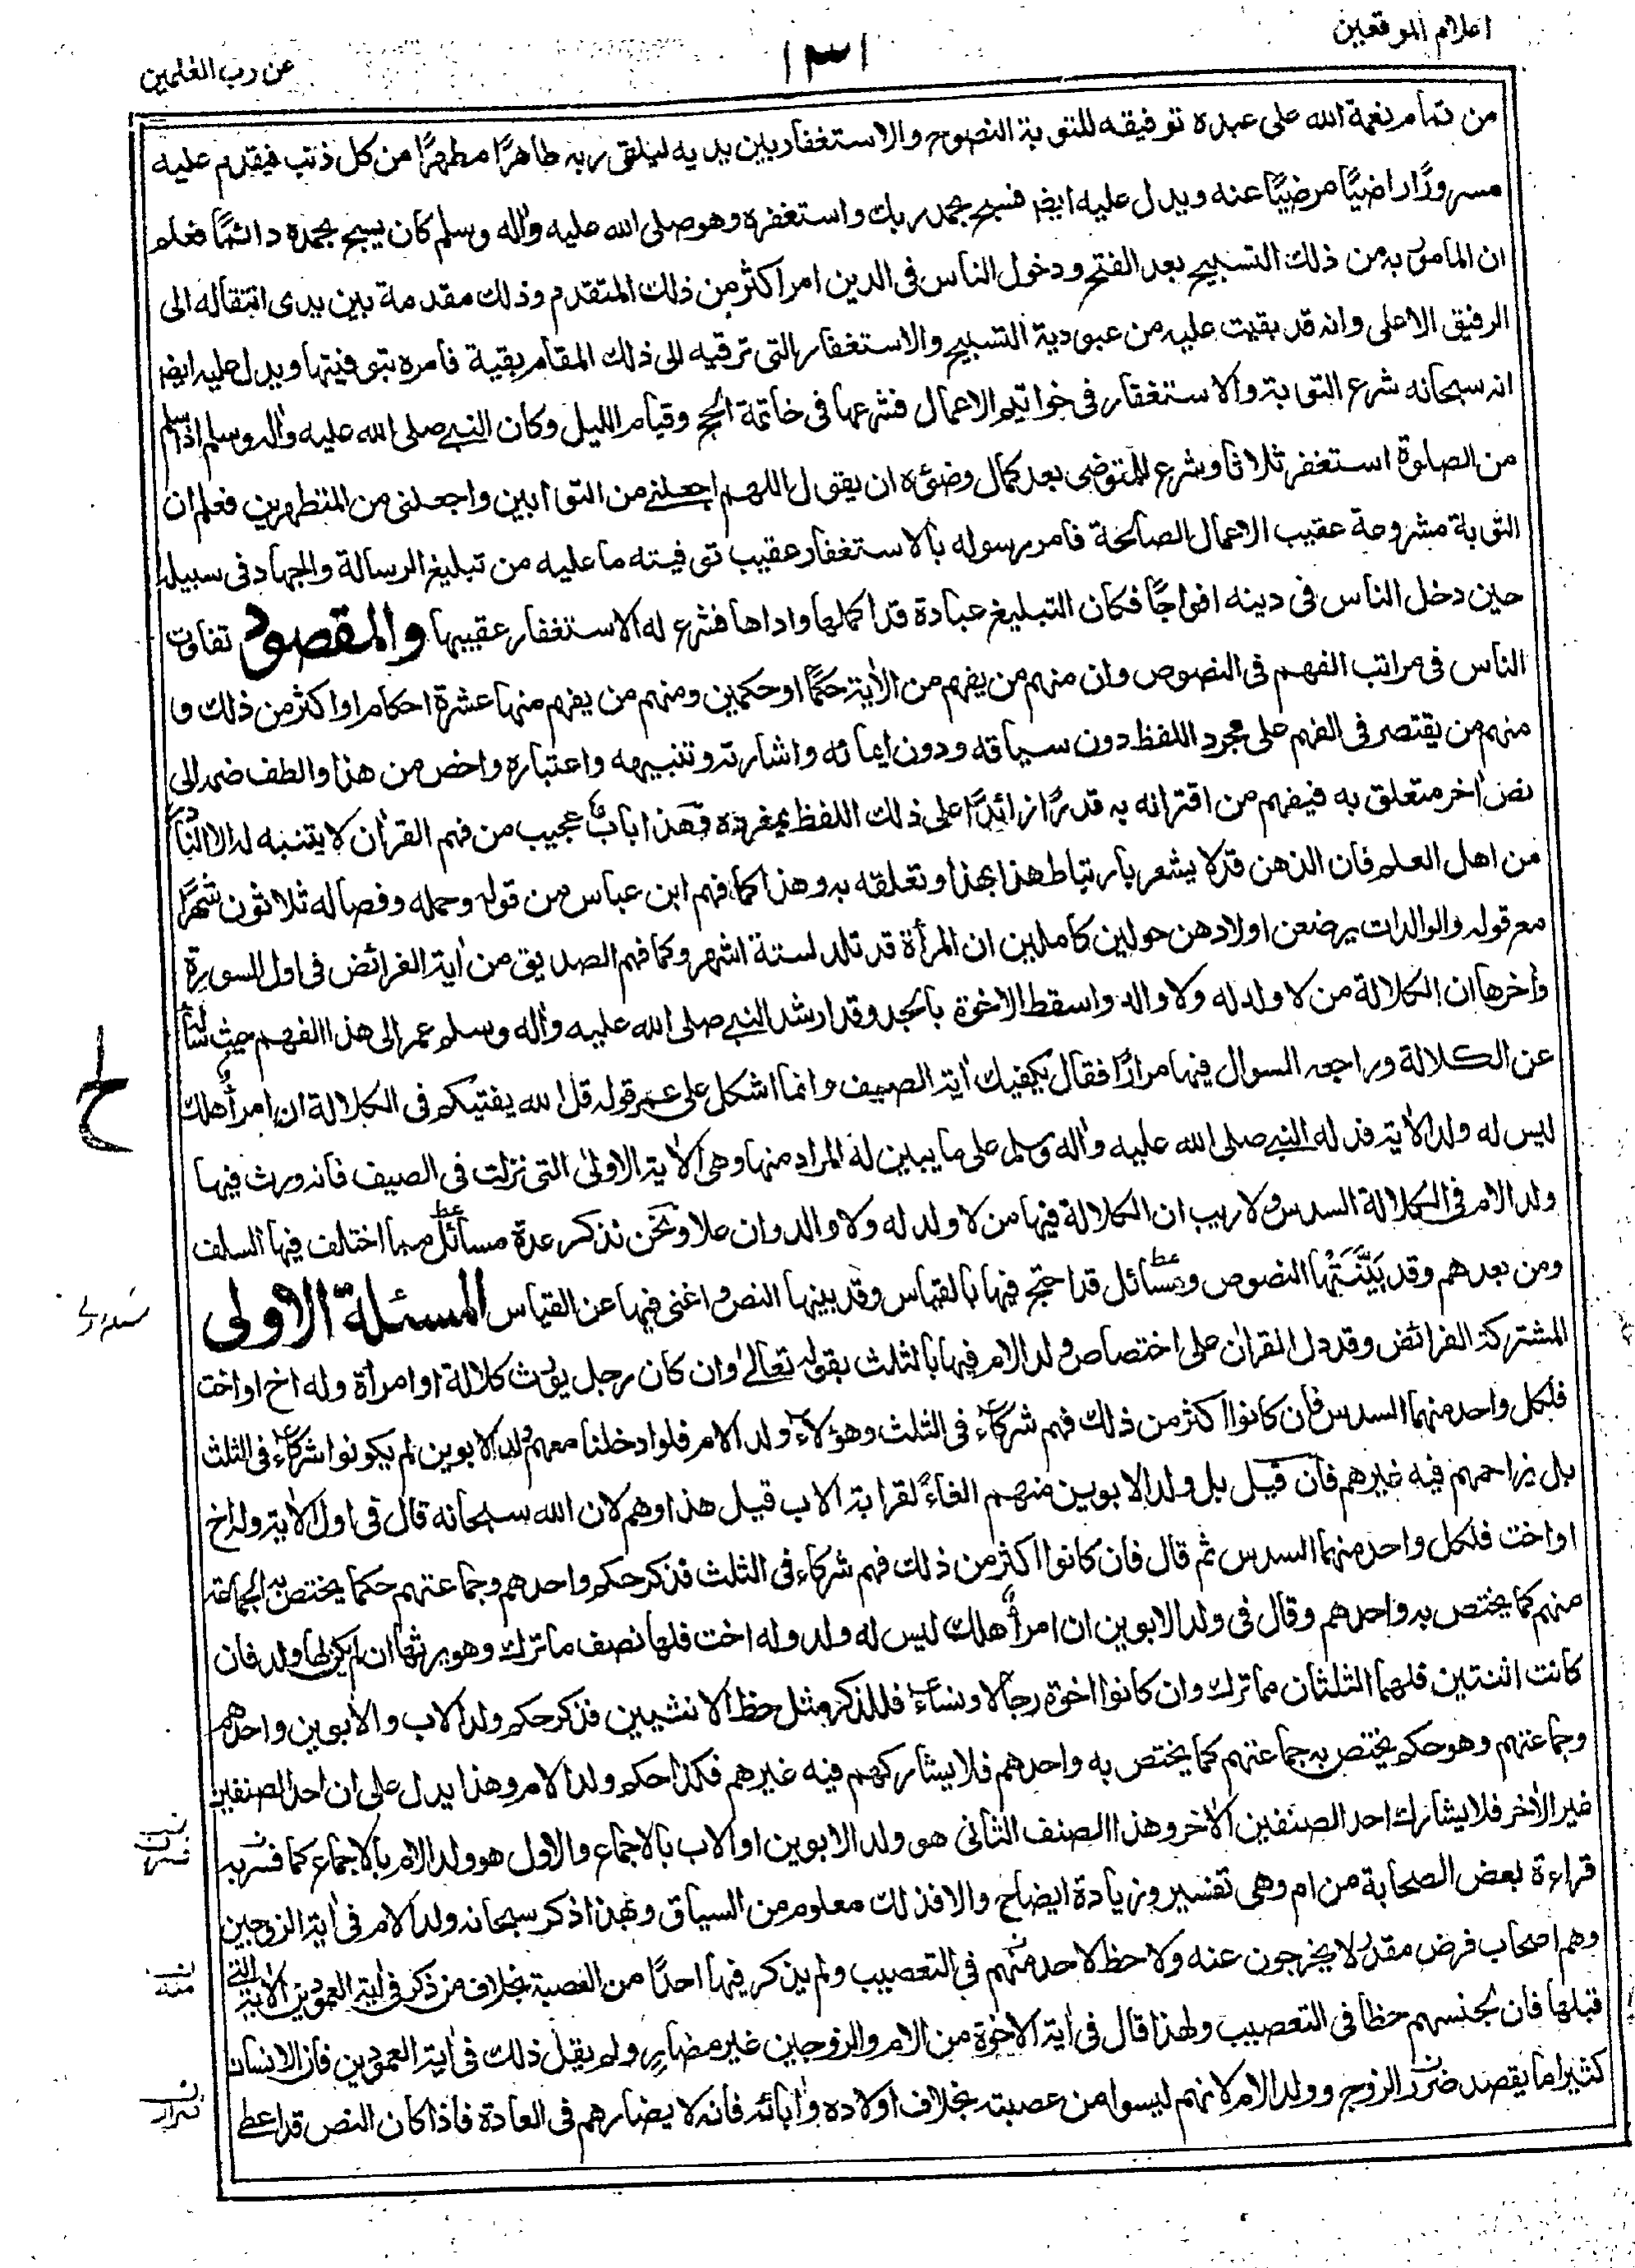 اعلام الموقعين
١٣١
عن رب العلمين
من تمام نعمة الله على عبده توفيقه للتوبة النصوح والاستغفار بين يديه ليلقى ربه طاهرًا مطهرًا من كل ذنب فيقدم عليه
مسرورًا راضيًا مرضيًا عنه ويدل عليه ايضا فسبح بحمد ربك واستغفره وهو صلى الله عليه واٰله وسلم كان يسبح بحمده دائمًا فعلم
ان المامور به من ذلك التسبيح بعد الفتح ودخول الناس فى الدين امر اكثر من ذلك المتقدم وذلك مقدمة بين يدى انتقاله الى
الرفيق الاعلى وانه قد بقيت عليه من عبودية التسبيح والاستغفار التى ترقيه الى ذلك المقام بقية فامره بتوفيتها ويدل عليه ايضا
انه سبحانه شرع التوبة والاستغفار فى خواتيم الاعمال فشرعها فى خاتمة الحج وقيام الليل وكان النبى صلى الله عليه واٰله وسلم اذا سلم
من الصلوة استغفر ثلاثا وشرع للمتوضى بعد كمال وضوئه ان يقول اللهم اجعلنى من التوابين واجعلنى من المتطهرين فعلم ان
التوبة مشروعة عقيب الاعمال الصالحة فامر رسوله بالاستغفار عقيب توفيته ما عليه من تبليغ الرسالة والجهاد فى سبيله
حين دخل الناس فى دينه افواجًا فكان التبليغ عبادة قد اكملها واداها فشرع له الاستغفار عقيبها والمقصود تفاوت
الناس فى مراتب الفهم فى النصوص وان منهم من يفهم من الاٰية حكمًا او حكمين ومنهم من يفهم منها عشرة احكام او اكثر من ذلك و
منهم من يقتصر فى الفهم على مجرد اللفظ دون سياقه ودون ايمائه واشارته وتنبيهه واعتباره واخص من هذا والطف ضمه الى
نص اٰخر متعلق به فيفهم من اقترانه به قدرًا زائدًا على ذلك اللفظ بمفرده وهذا باب عجيب من فهم القراٰن لا يتنبه له الا النادر
من اهل العلم فان الذهن قد لا يشعر بارتباط هذا بهذا وتعلقه به وهذا كما فهم ابن عباس من قوله وحمله وفصاله ثلاثون شهرًا
مع قوله والوالدات يرضعن اولادهن حولين كاملين ان المرأة قد تلد لستة اشهر وكما فهم الصديق من اٰية الفرائض فى اول السورة
واٰخرها ان الكلالة من لا ولد له ولا والد واسقط الاخوة بالجد وقد ارشد النبى صلى الله عليه واٰله وسلم عمر الى هذا الفهم حيث سأله
عن الكلالة وراجعه السوال فيها مرارًا فقال يكفيك اٰية الصيف وانما اشكل على عمر قوله قل الله يفتيكم فى الكلالة ان امرؤ هلك
ليس له ولد الاٰية فدله النبى صلى الله عليه واٰله وسلم على ما يبين له المراد منها وهى الاٰية الاولى التى نزلت فى الصيف فانه ورث فيها
ولد الام فى الكلالة السدس ولا ريب ان الكلالة فيها من لا ولد له ولا والد وان علا ونحن نذكر عدة مسائل مما اختلف فيها السلف
ومن بعدهم وقد بَيَّنَتْها النصوص ومسائل قد احتج فيها بالقياس وقد بينها النص واغنى فيها عن القياس المسئلة الاولى
المشتركة الفرائض وقد دل القراٰن على اختصاص ولد الام فيها بالثلث بقوله تعالى وان كان رجل يورث كلالة او امرأة وله اخ او اخت
فلكل واحد منهما السدس فان كانوا اكثر من ذلك فهم شركاء فى الثلث وهؤلاء ولد الام فلو ادخلنا معهم ولد الابوين لم يكونوا شركاء فى الثلث
بل يزاحمهم فيه غيرهم فان قيل بل ولد الابوين منهم الغاءً لقرابة الاب قيل هذا وهم لان الله سبحانه قال فى اول الاٰية وله اخ
او اخت فلكل واحد منهما السدس ثم قال فان كانوا اكثر من ذلك فهم شركاء فى الثلث فذكر حكم واحدهم وجماعتهم حكما يختص به الجماعة
منهم كما يختص به واحدهم وقال فى ولد الابوين ان امرؤ هلك ليس له ولد وله اخت فلها نصف ما ترك وهو يرثها ان لم يكن لها ولد فان
كانت اثنتين فلهما الثلثان مما ترك وان كانوا اخوة رجالا ونساء فللذكر مثل حظ الانثيين فذكر حكم ولد الاب والابوين واحدهم
وجماعتهم وهو حكم يختص به جماعتهم كما يختص به واحدهم فلا يشاركهم فيه غيرهم فكذا حكم ولد الام وهذا يدل على ان احد الصنفين
غير الاٰخر فلا يشارك احد الصنفين الاٰخر وهذا الصنف الثانى هو ولد الابوين او الاب بالاجماع والاول هو ولد الام بالاجماع كما فسر به
قراءة بعض الصحابة من ام وهى تفسير وزيادة ايضاح والا فذلك معلوم من السياق ولهذا ذكر سبحانه ولد الام فى اٰية الزوجين
وهم اصحاب فرض مقدر لا يخرجون عنه ولا حظ لاحد منهم فى التعصيب ولم يذكر فيها احدًا من العصبة بخلاف من ذكر فى اٰية العمودين الاٰية التى
قبلها فان لجنسهم حظا فى التعصيب ولهذا قال فى اٰية الاخوة من الام والزوجين غير مضار ولم يقل ذلك فى اٰية العمودين فان الانسان
كثيرا ما يقصد ضرر الزوج وولد الام لانهم ليسوا من عصبته بخلاف اولاده واٰبائه فانه لا يضارهم فى العادة فاذا كان النص قد اعطى